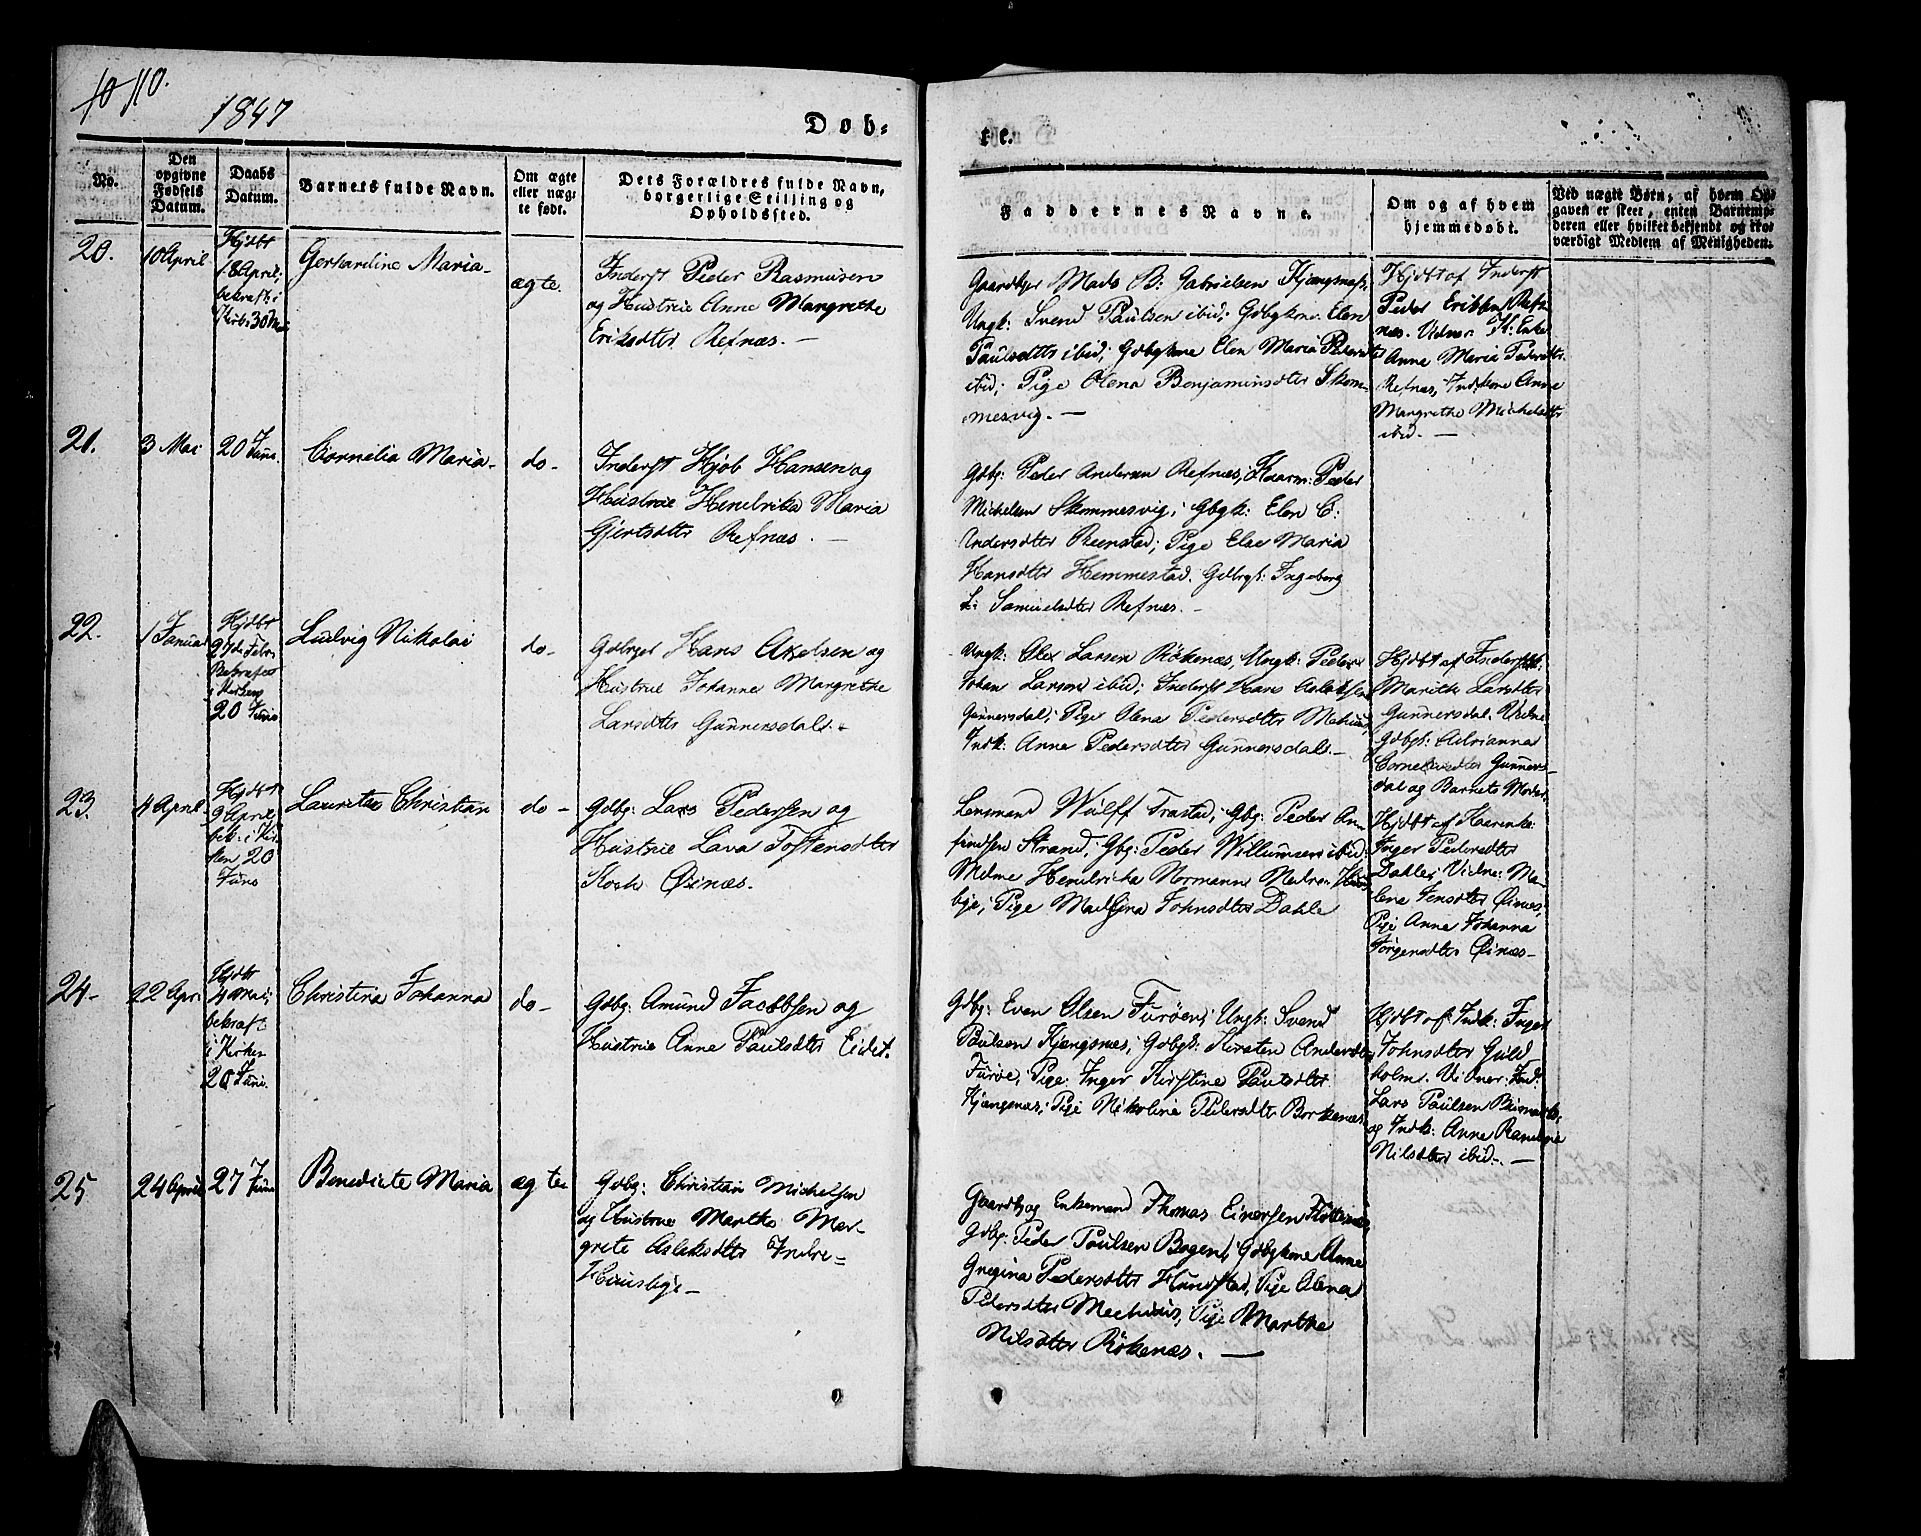 10 110.
1847
Dob=
te.
No.
Den opgivne Fødsels Datum.
Daabs Datum.
Barnets fulde Navn.
Om ægte eller uægte født.
Dets Forældres fulde Navn, borgerlige Stilling og Opholdssted.
Faddernes Navne.
Om og af hvem hjemmedøbt.
Ved uægte Børn, af hvem Opgaven er skeet, enten Barnemoderen eller hvilket bekjendt og troværdigt Medlem af Menigheden.
20.
10 April
Hjdbt
18 April,
bekræft. i
Kirk. 30 Mai
Gerhardine Maria
ægte.
Inderst Peder Rasmusen
og Hustrue Anne Margrethe
Eriksdtr Refnæs. —
Gaardbgr Mads B: Gabrielsen Kjængsnæs:
Ungk: Svend Paulsen ibid; Gdbgkone Elen
Paulsdtr ibid; Gdbgkone Elen Maria Pedersdtr
ibid; Pige Olena Benjaminsdtr Skom-
mesvig. —
Hjdbt af Inderst
Peder Eriksen Ref-
næs. Vidner: Enke
Anne Maria Pedersdtr
Refnæs, Indkone Anne
Margrethe Michelsdtr
ibid. —
21.
3 Mai
20 Juni.
Cornelia Maria
do
Inderst Hjob Hansen og
Hustrue Hendrika Maria
Gjertsdtr Refnæs. —
Gdbg: Peder Andersen Refnæs; Kaarm: Peder
Michelsen Skommesvig; Gbgk: Elen C:
Andersdtr Reenstad; Pige Else Maria
Hansdtr Hemmestad. Gdbgk: Ingeborg
L: Samuelsdtr Refnæs. —
22.
1 Januar
Hjdbt
27de Febr.
Bekræftet
i Kirken
20 Juni
Ludvig Nikolai
do
Gdbrger Hans Axelsen og
Hustrue Johanne Margrethe
Larsdtr Gunnersdal.
Ungk: Alex Larsen Rökenæs, Ungk: Peder
Johan Larsen ibid; Inderst Hans Aslaksen
Gunnersdal; Pige Olena Pedersdtr
Indk: Anne Pedersdtr Gunnersdal. —
Hjdbt af Inderstk:
Marith Larsdtr
Gunnersdal. Vidne
Gdbgk: Adrianna
Corneliusdtr Gunners-
dal og Barnets Moder.
23.
4 April
Hjdbt
9 April
bek: i Kir-
ken 20
Juni
Lauritz Christian
do
Gdbg: Lars Pedersen og
Hustrue Lava Tostensdtr
Koch Øinæs.
Lensmand Wulff Trastad; Gbg: Peder An-
findsen Strand; Gbg: Peder Willumsen ibid:
Mdme Hendrika Normann Nedre Huus-
bye; Pige Johnsdtr Dahle
Hjdbt af Kaarenke:
Inger Pedersdtr
Dahle; Vidne: Ma-
lene Jensdtr Øinæs,
Pige Anne Johanna
Jörgensdtr Øinæs —
24
22 Apri
Hjdbt
4 Mai;
bekræft:
i Kirken
20 Juni
Christina Johanna
do
Gdbg: Amund Jacobsen og
Hustrue Anne Paulsdtr Eidet.
Gdbg: Even Olsen Furöen; Ungk: Svend
Paulsen Kjængsnæs; Gdbgk: Kirsten Andersdtr
Furöe; Pige Inger Kirstine Paulsdtr
Kjængsnæs; Pige Nikoline Pedersdtr Borkenæs
Hjdbt af Indk: Inger
Johnsdtr Guld-
holm. Vidner: Ind:
Lars Paulsen
og Indk: Anne
Nilsdtr ibid. —
25
24 April
27 Juni
Benedicte Maria
ægte
Gdbg: Christian Michelsen
og Hustrue Marthe Mar-
grete Aslaksdtr Indre-
Huusbye —
Gaardbg og Enkemand Thomas Einersen
Gdbg: Peder Paulsen Bogen; Gdbgkone Anne
Gregina Pedersdtr Hundstad, Pige Olena
Pedersdtr, Pige Marthe
Nilsdtr Rökenæs. —